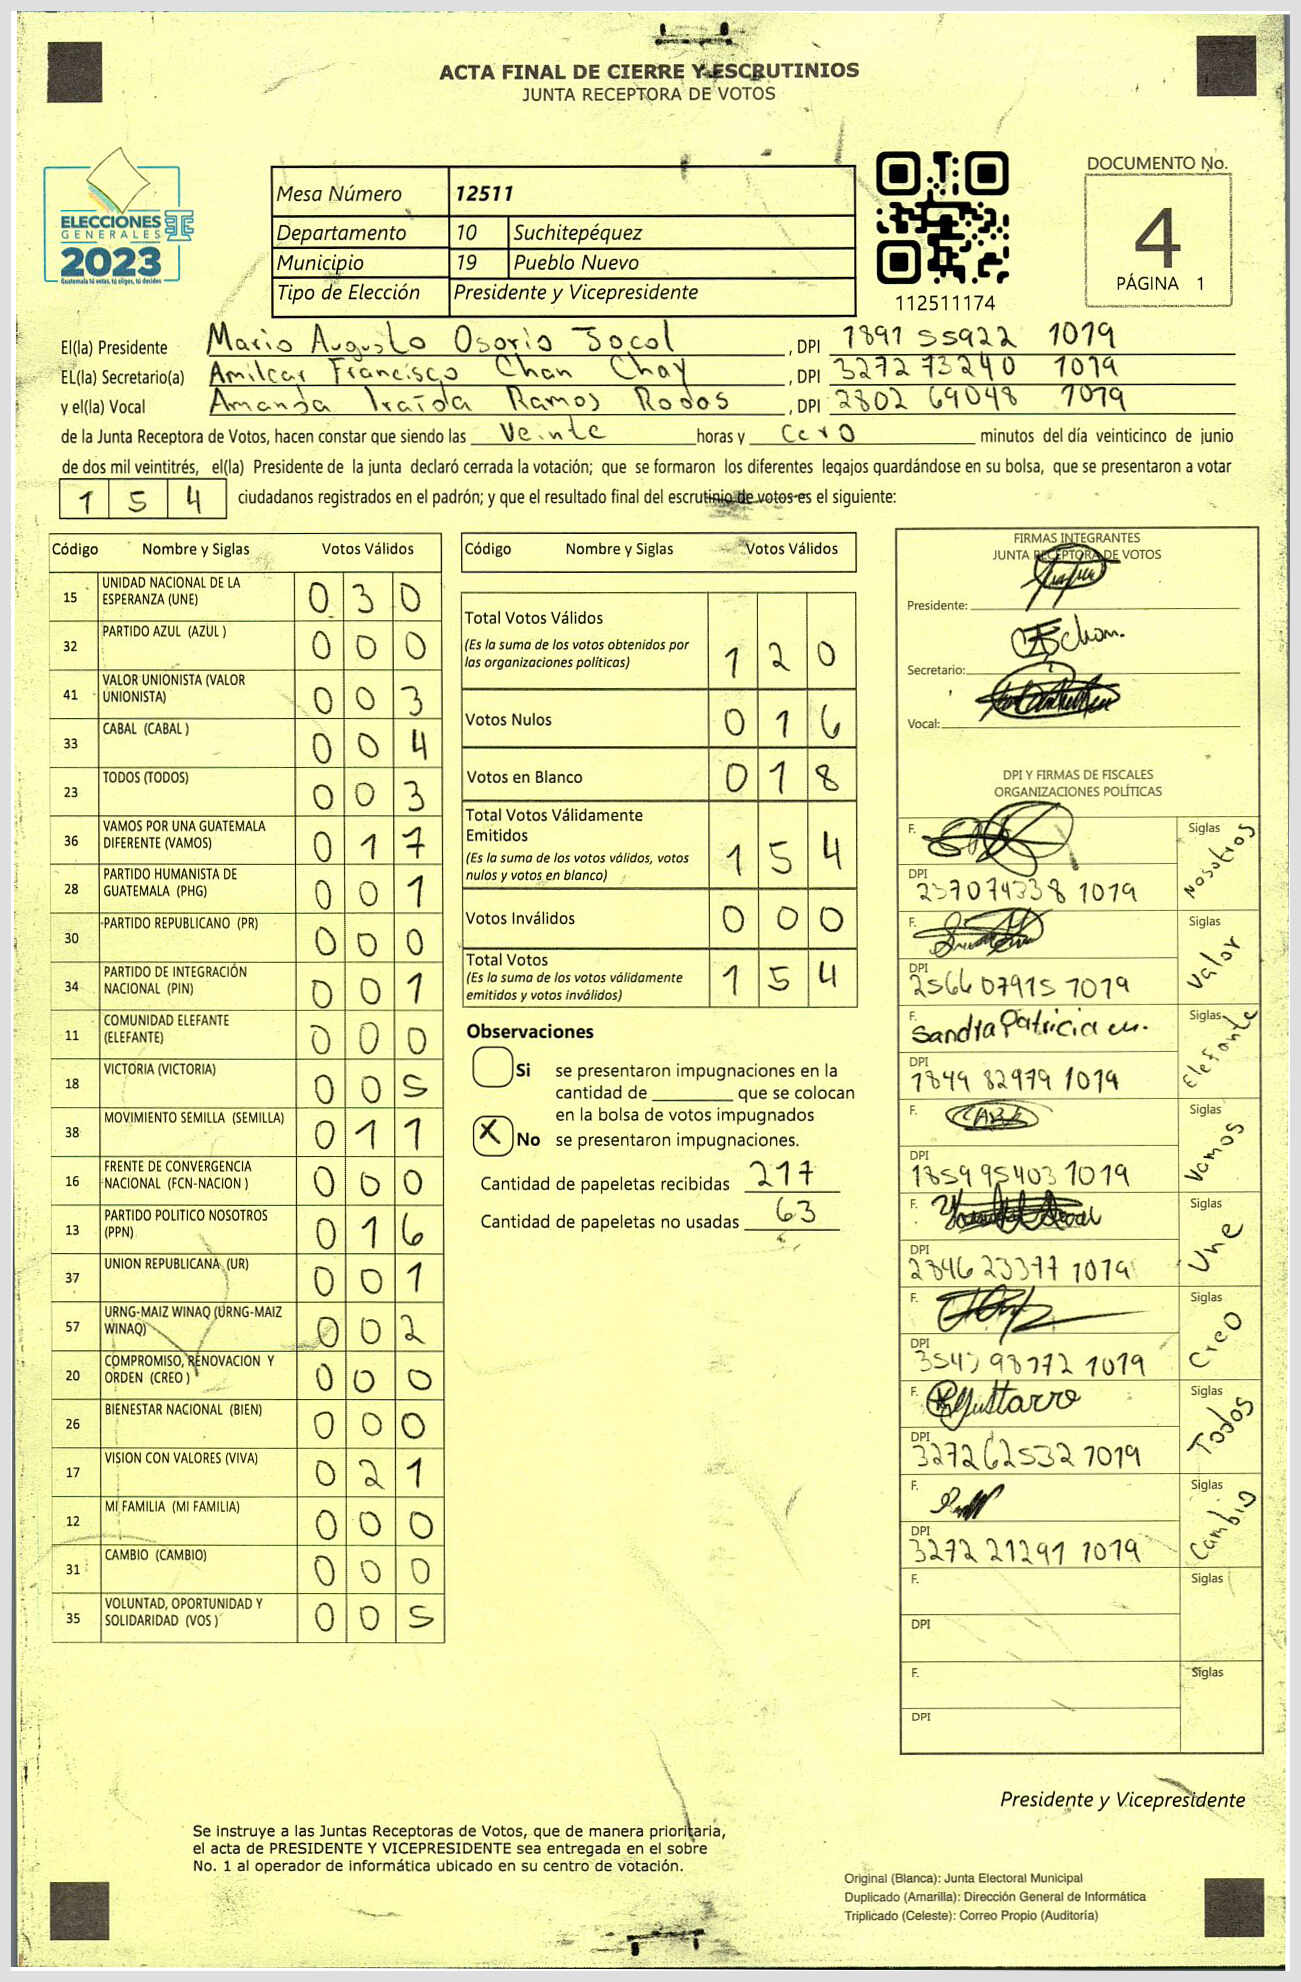 ACTA FINAL DE CIERRE Y ESCRUTINIOS
JUNTA RECEPTORA DE VOTOS
ELECCIONES
GENERALES
2023
Guatemala tú votas, tú eliges, tú decides
Mesa Número 12511
Departamento 10 Suchitepéquez
Municipio 19 Pueblo Nuevo
Tipo de Elección Presidente y Vicepresidente
112511174
DOCUMENTO No.
4
PÁGINA 1
El(la) Presidente Mario Augusto Osorio Jocol , DPI 1891 55922 1019
EL(la) Secretario(a) Amilcar Francisco Chan Chay , DPI 3272 73240 1019
y el(la) Vocal Amanda Iraída Ramos Rodos , DPI 2802 69048 1019
de la Junta Receptora de Votos, hacen constar que siendo las Veinte horas y Cero minutos del día veinticinco de junio
de dos mil veintitrés, el(la) Presidente de la junta declaró cerrada la votación; que se formaron los diferentes legajos guardándose en su bolsa, que se presentaron a votar
1 5 4 ciudadanos registrados en el padrón; y que el resultado final del escrutinio de votos es el siguiente:
Código Nombre y Siglas Votos Válidos
15 UNIDAD NACIONAL DE LA ESPERANZA (UNE) 0 3 0
32 PARTIDO AZUL (AZUL ) 0 0 0
41 VALOR UNIONISTA (VALOR UNIONISTA) 0 0 3
33 CABAL (CABAL ) 0 0 4
23 TODOS (TODOS) 0 0 3
36 VAMOS POR UNA GUATEMALA DIFERENTE (VAMOS) 0 1 7
28 PARTIDO HUMANISTA DE GUATEMALA (PHG) 0 0 1
30 PARTIDO REPUBLICANO (PR) 0 0 0
34 PARTIDO DE INTEGRACIÓN NACIONAL (PIN) 0 0 1
11 COMUNIDAD ELEFANTE (ELEFANTE) 0 0 0
18 VICTORIA (VICTORIA) 0 0 5
38 MOVIMIENTO SEMILLA (SEMILLA) 0 1 1
16 FRENTE DE CONVERGENCIA NACIONAL (FCN-NACION ) 0 0 0
13 PARTIDO POLITICO NOSOTROS (PPN) 0 1 6
37 UNION REPUBLICANA (UR) 0 0 1
57 URNG-MAIZ WINAQ (URNG-MAIZ WINAQ) 0 0 2
20 COMPROMISO, RENOVACION Y ORDEN (CREO ) 0 0 0
26 BIENESTAR NACIONAL (BIEN) 0 0 0
17 VISION CON VALORES (VIVA) 0 2 1
12 MI FAMILIA (MI FAMILIA) 0 0 0
31 CAMBIO (CAMBIO) 0 0 0
35 VOLUNTAD, OPORTUNIDAD Y SOLIDARIDAD (VOS ) 0 0 5
Código Nombre y Siglas Votos Válidos
Total Votos Válidos
(Es la suma de los votos obtenidos por
las organizaciones políticas) 1 2 0
Votos Nulos 0 1 6
Votos en Blanco 0 1 8
Total Votos Válidamente
Emitidos
(Es la suma de los votos válidos, votos
nulos y votos en blanco) 1 5 4
Votos Inválidos 0 0 0
Total Votos
(Es la suma de los votos válidamente
emitidos y votos inválidos) 1 5 4
Observaciones
Si se presentaron impugnaciones en la
cantidad de ________ que se colocan
en la bolsa de votos impugnados
X No se presentaron impugnaciones.
Cantidad de papeletas recibidas 217
Cantidad de papeletas no usadas 63
FIRMAS INTEGRANTES
JUNTA RECEPTORA DE VOTOS
Presidente:
Secretario:
Vocal:
DPI Y FIRMAS DE FISCALES
ORGANIZACIONES POLÍTICAS
F. Siglas Nosotros
DPI 1019
F. Siglas Valor
DPI 2566 07915 1019
F. Sandra Patricia Siglas Elefante
DPI 1849 82979 1019
F. Siglas Vamos
DPI 1859 95403 1019
F. Siglas Une
DPI 2846 23377 1019
F. Siglas Creo
DPI 1019
F. Siglas Todos
DPI 3272 62532 1019
F. Siglas Cambio
DPI 3272 21291 1019
F. Siglas
DPI
F. Siglas
DPI
Presidente y Vicepresidente
Se instruye a las Juntas Receptoras de Votos, que de manera prioritaria,
el acta de PRESIDENTE Y VICEPRESIDENTE sea entregada en el sobre
No. 1 al operador de informática ubicado en su centro de votación.
Original (Blanca): Junta Electoral Municipal
Duplicado (Amarilla): Dirección General de Informática
Triplicado (Celeste): Correo Propio (Auditoría)